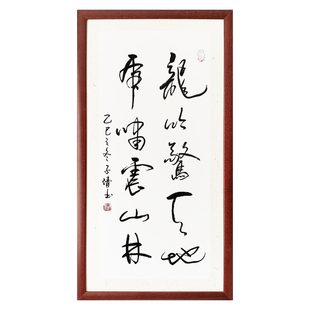 龍吟驚天地
虎嘯震山林
乙巳之冬子書